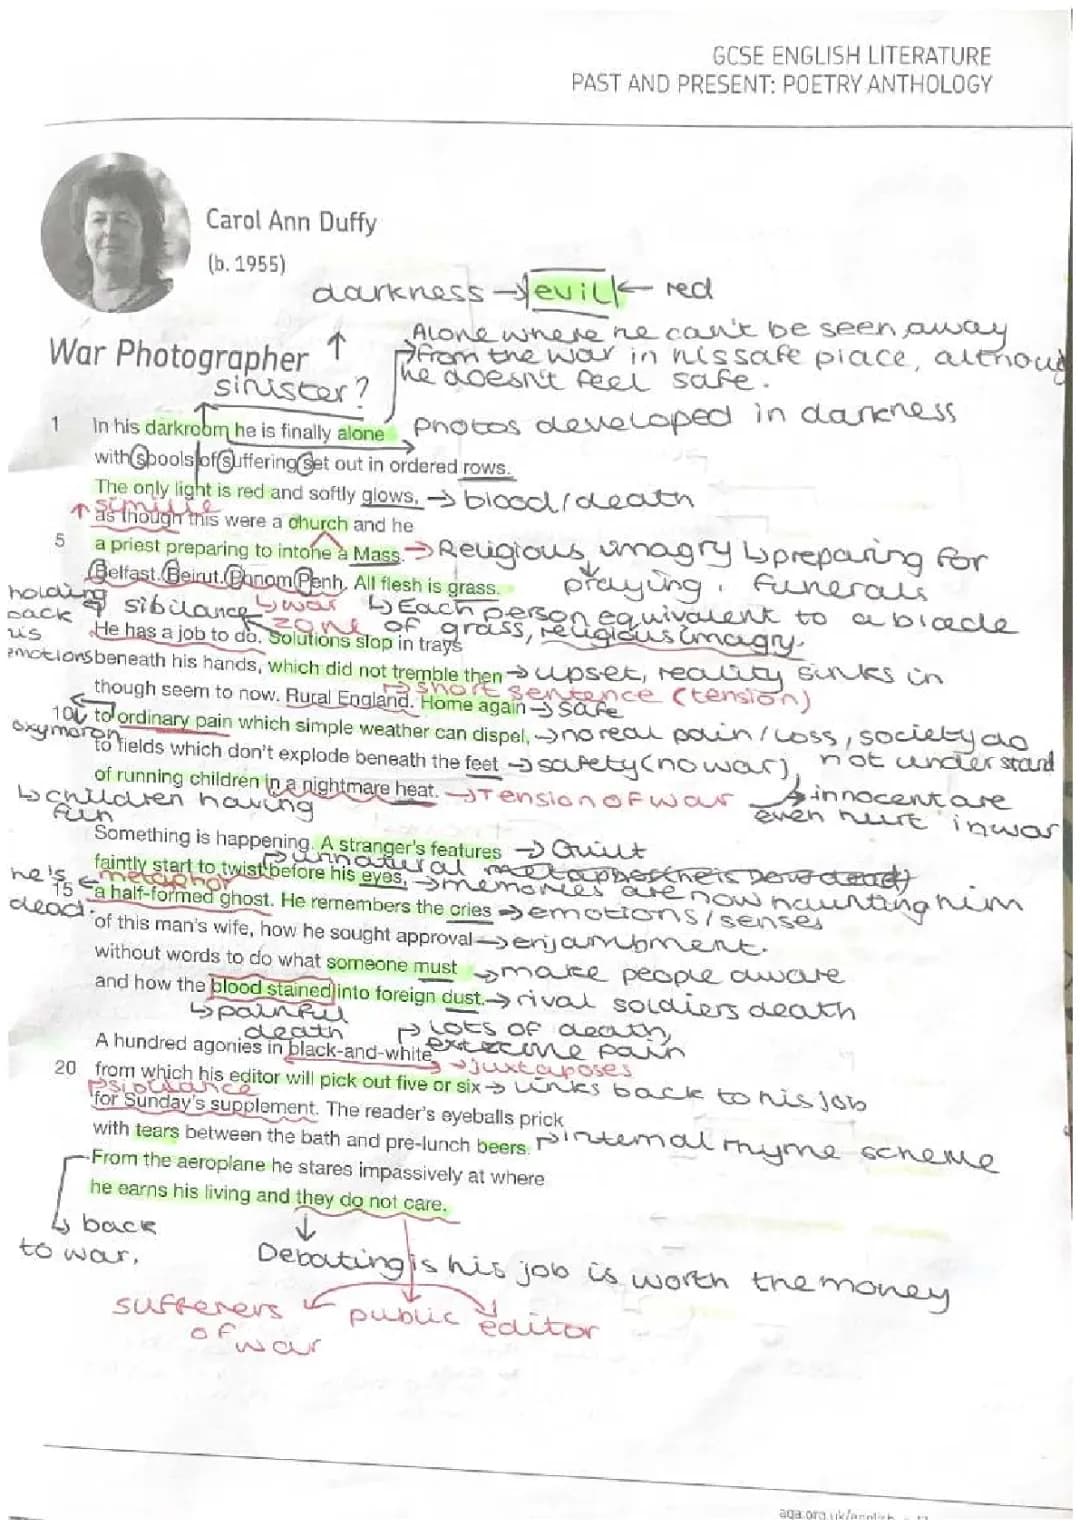 GCSE ENGLISH LITERATURE
PAST AND PRESENT: POETRY ANTHOLOGY
Carol Ann Duffy
(b. 1955)
darkness → evil ← red
War Photographer
sinister?
Alone where he can't be seen, away
from the war in his safe place, although
he doesn't feel safe.
1 In his darkroom he is finally alone
Photos developed in darkness
with spools of suffering set out in ordered rows.
The only light is red and softly glows, → blood/death
simille
as though this were a church and he
5 a priest preparing to intone a Mass. → Religious imagry ↳ preparing for
praying. funerals
Belfast. Beirut. Phnom Penh. All flesh is grass.
holding back his emotions
sibilance
↳ war zone
↳ Each person equivalent to a blade
of grass, religious imagry.
He has a job to do. Solutions slop in trays
beneath his hands, which did not tremble then → upset, reality sinks in
short sentence (tension)
though seem to now. Rural England. Home again → safe
10 to ordinary pain which simple weather can dispel, → no real pain/loss, society do
not understand
oxymoron
to fields which don't explode beneath the feet → safety (no war),
of running children in a nightmare heat. → Tension of war
→ innocent are
even hurt in war
↳ children having
fun
Something is happening. A stranger's features → Guilt
↳ unnatural
faintly start to twist before his eyes, → memories are now haunting him
metaphor
he's dead.
15 a half-formed ghost. He remembers the cries → emotions/senses
of this man's wife, how he sought approval → enjambment.
without words to do what someone must → make people aware
and how the blood stained into foreign dust. → rival soldiers death
↳ painful
death
↱ lots of death,
extreme pain
A hundred agonies in black-and-white
→ juxtaposes
20 from which his editor will pick out five or six → links back to his job
sibilance
for Sunday's supplement. The reader's eyeballs prick
with tears between the bath and pre-lunch beers. internal rhyme scheme
From the aeroplane he stares impassively at where
he earns his living and they do not care.
↳ back
to war.
Debating is his job is worth the money
sufferers
of war
public
editor
aqa.org.uk/english